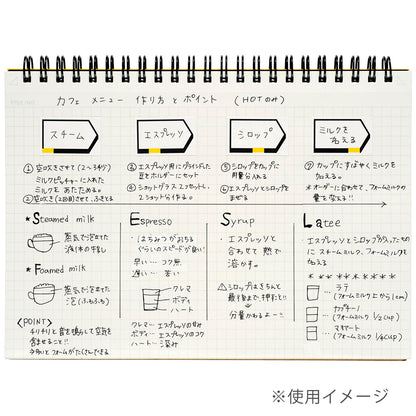 カフェ メニュー 作り方とポイント (HOTのみ)
スチーム
エスプレッソ
シロップ
ミルクを
加える
①空吹きさせて(2~3秒)
ミルクピッチャーに入れた
ミルクを あたためる。
②空吹き(2回)させて、ふきとる
③エスプレッソ用にグラインドした
豆をホルダーにセット
④ショットグラス 2つセットし、
2ショット分作る。
⑤シロップをカップに
用量分入れる
⑥エスプレッソとシロップを
まぜる
⑦カップにすばやくミルクを
加える。
*オーダーに合わせて、フォームミルクの
量を変える!!
* Steamed milk
蒸気で泡立てた
液体の牛乳
* Foamed milk
蒸気で泡立てた
泡(ふわふわ)
<POINT>
チリチリと音を鳴らして空気を
含ませること!!
Espresso
・はちみつがおちる
ぐらいのスピードが良い!
早い… コク無
遅い… 苦い
クレマ
ボディ
ハート
クレマ… エスプレッソの甘み
ボディー… エスプレッソのコク
ハート… 深み
Syrup
・エスプレッソと
合わせて熱で
溶かす。
⚠シロップはきちんと
最後まで押すこと!!
分量かわるよー
Latee
・エスプレッソとシロップが入ったものに
スチームミルク、フォームミルクを
加える
* * * * * * * * * *
… ラテ
(フォームミルク 上から1cm)
… カプチーノ
(フォームミルク 1/2cup)
… マキアート
(フォームミルク 1/4cup)
※使用イメージ